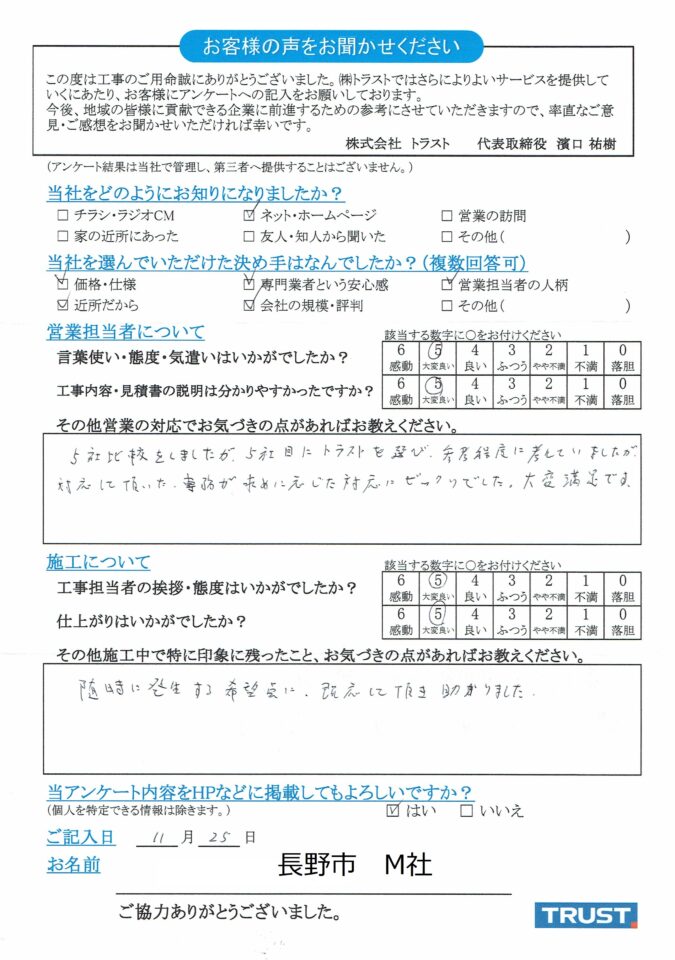 お客様の声をお聞かせください
この度は工事のご用命誠にありがとうございました。㈱トラストではさらによりよいサービスを提供して
いくにあたり、お客様にアンケートへの記入をお願いしております。
今後、地域の皆様に貢献できる企業に前進するための参考にさせていただきますので、率直なご意
見・ご感想をお聞かせいただければ幸いです。
株式会社 トラスト 代表取締役 濱口 祐樹
(アンケート結果は当社で管理し、第三者へ提供することはございません。)
当社をどのようにお知りになりましたか?
□ チラシ・ラジオCM ☑ ネット・ホームページ □ 営業の訪問
□ 家の近所にあった □ 友人・知人から聞いた □ その他( )
当社を選んでいただけた決め手はなんでしたか?(複数回答可)
☑ 価格・仕様 ☑ 専門業者という安心感 ☑ 営業担当者の人柄
☑ 近所だから ☑ 会社の規模・評判 □ その他( )
営業担当者について 該当する数字に○をお付けください
言葉使い・態度・気遣いはいかがでしたか?
6 5 4 3 2 1 0
感動 大変良い 良い ふつう やや不満 不満 落胆
工事内容・見積書の説明は分かりやすかったですか?
6 5 4 3 2 1 0
感動 大変良い 良い ふつう やや不満 不満 落胆
その他営業の対応でお気づきの点があればお教えください。
5社比較をしましたが、5社目にトラストを選び、参考程度に考えていましたが
対応して頂いた、専務が求めに応じた対応にビックリでした。大変満足です。
施工について 該当する数字に○をお付けください
工事担当者の挨拶・態度はいかがでしたか?
6 5 4 3 2 1 0
感動 大変良い 良い ふつう やや不満 不満 落胆
仕上がりはいかがでしたか?
6 5 4 3 2 1 0
感動 大変良い 良い ふつう やや不満 不満 落胆
その他施工中で特に印象に残ったこと、お気づきの点があればお教えください。
随時に発生する希望点に、 応して頂き助かりました。
当アンケート内容をHPなどに掲載してもよろしいですか?
(個人を特定できる情報は除きます。) ☑ はい □ いいえ
ご記入日 11 月 25 日
お名前 長野市 M社
ご協力ありがとうございました。
TRUST.